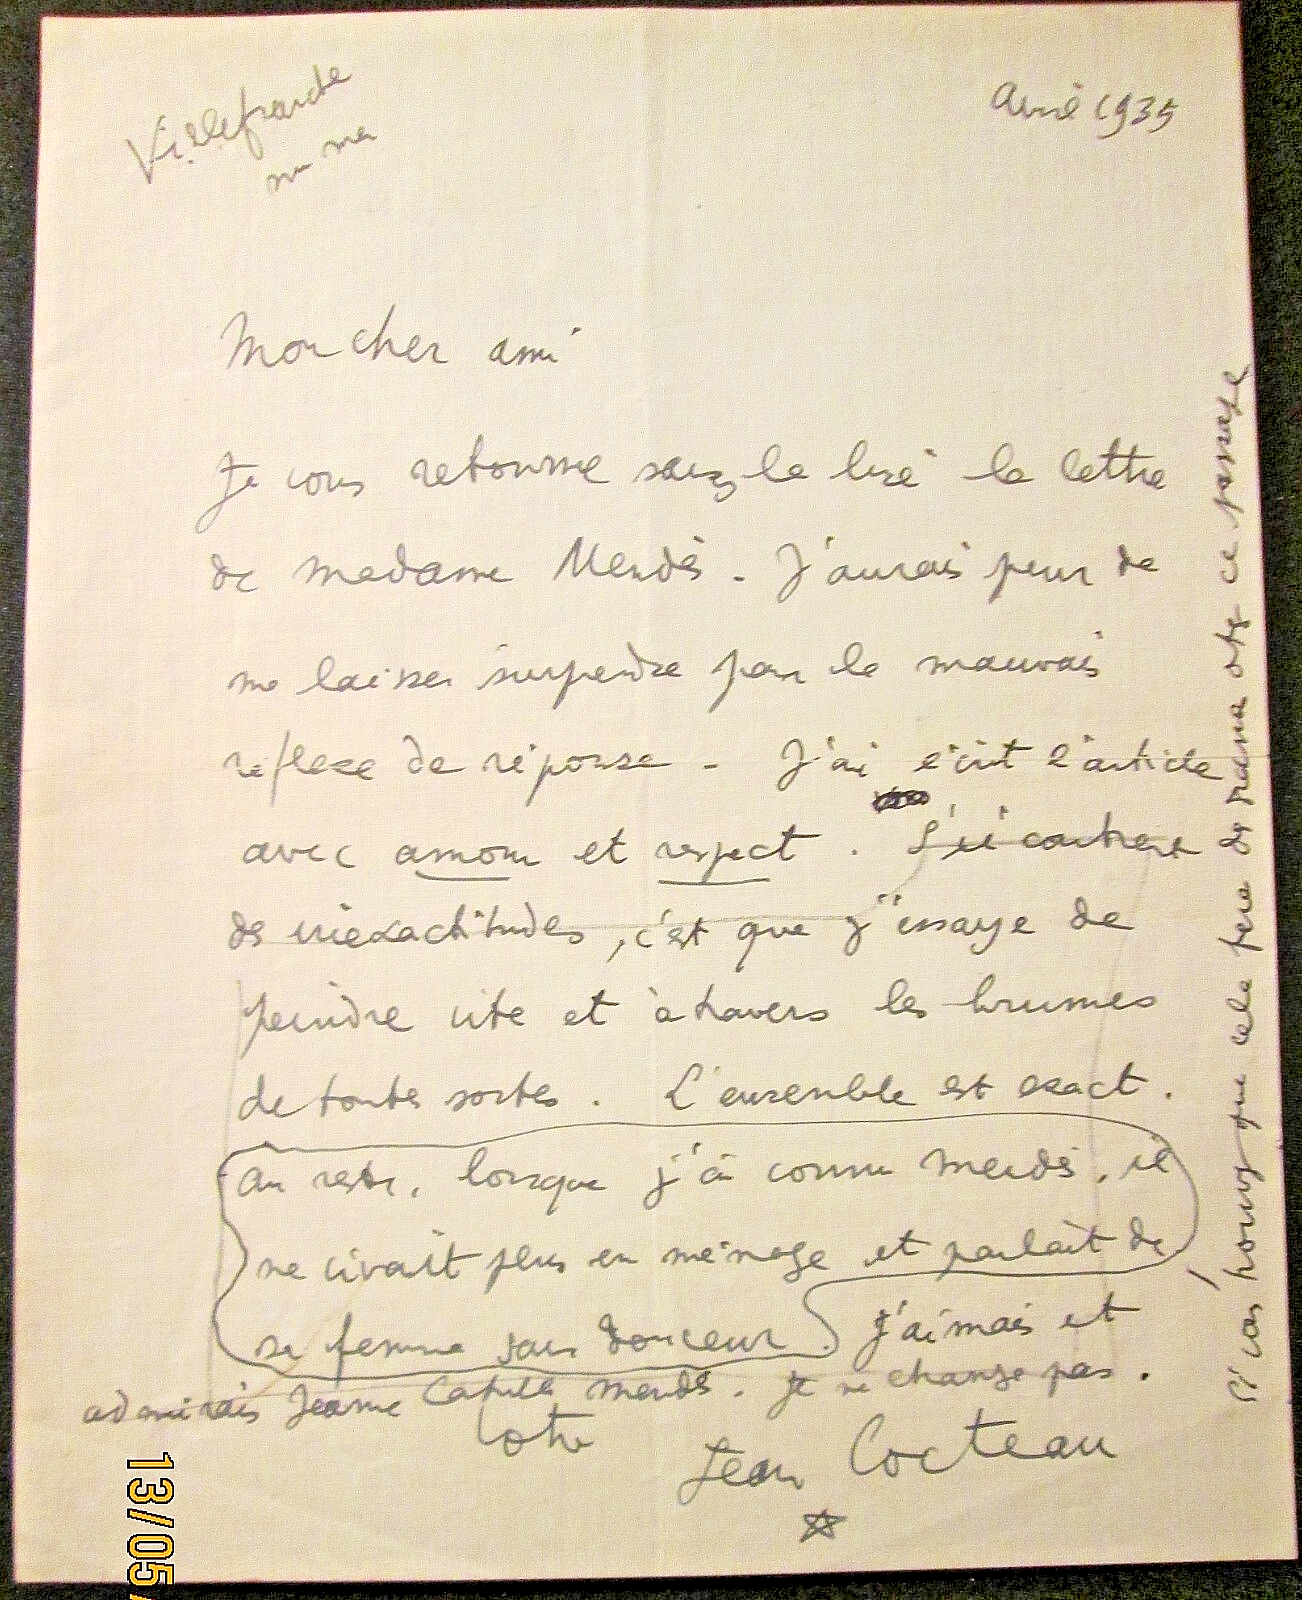 Villefranche
sur mer
Avril 1935
Mon cher ami
Je vous retourne sans la lire la lettre
de madame Mendès. J'aurais peur de
me laisser surprendre par le mauvais
reflexe de réponse - J'ai écrit l'article
avec amour et respect. S'il contient
des inexactitudes, c'est que j'essaye de
peindre vite et à travers les brumes
de toutes sortes. L'ensemble est exact.
Au reste, lorsque j'ai connu Mendès, il
ne vivait plus en ménage et parlait de
sa femme sans douceur. J'aimais et
admirais Jeanne Catulle Mendès. Je ne change pas.
Votre
Jean Cocteau
Si vous trouvez que cela fera du drama ôtez ce passage
13/05